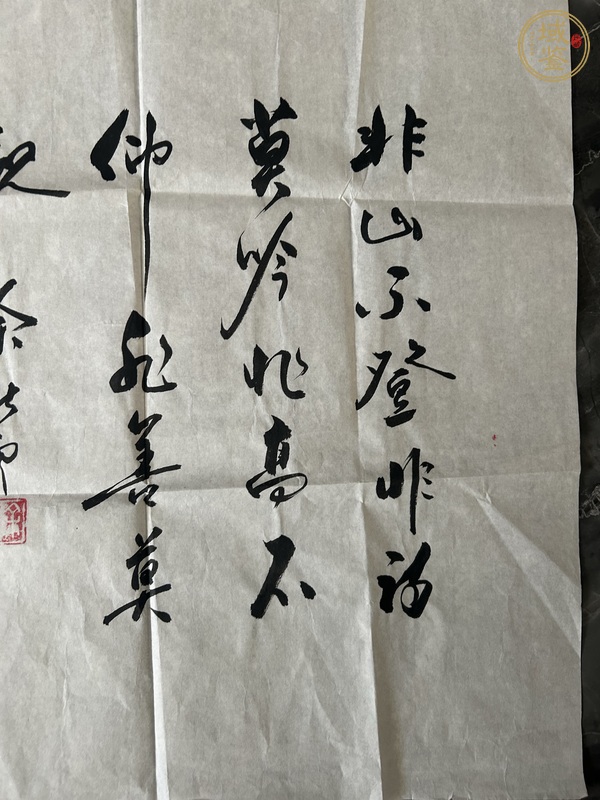 非山不登非诗
莫吟非高不
仰非善莫
观 余
域鉴